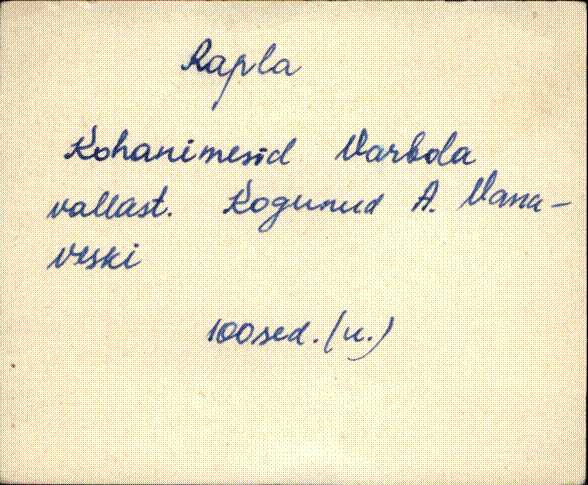 Rapla
Kohanimesid Varbola
vallast. Kogunud A. Vana-
veski
100 sed. (u.)